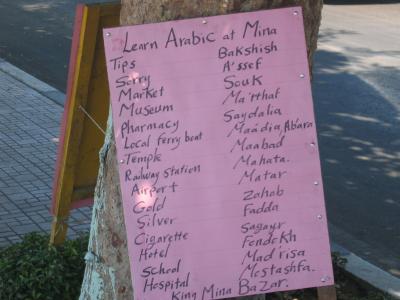 Learn Arabic at Mina
Tips Bakshish
Sorry A'ssef
Market Souk
Museum Ma'tthaf
Pharmacy Saydalia
Local ferry boat Maadia, Abara
Temple Maabad
Railway station Mahata.
Airport Matar
Gold Zahab
Silver Fadda
Cigarette Sagayr
Hotel Fondokh
School Mad'risa
Hospital Mostashfa.
King Mina Bazar.